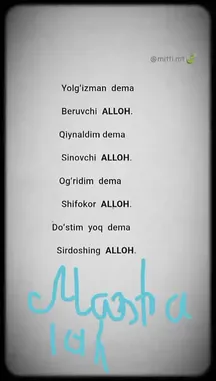 @mitti.mt
Yolg'izman dema
Beruvchi ALLOH.
Qiynaldim dema
Sinovchi ALLOH.
Og'ridim dema
Shifokor ALLOH.
Do'stim yoq dema
Sirdoshing ALLOH.
Masha
lah